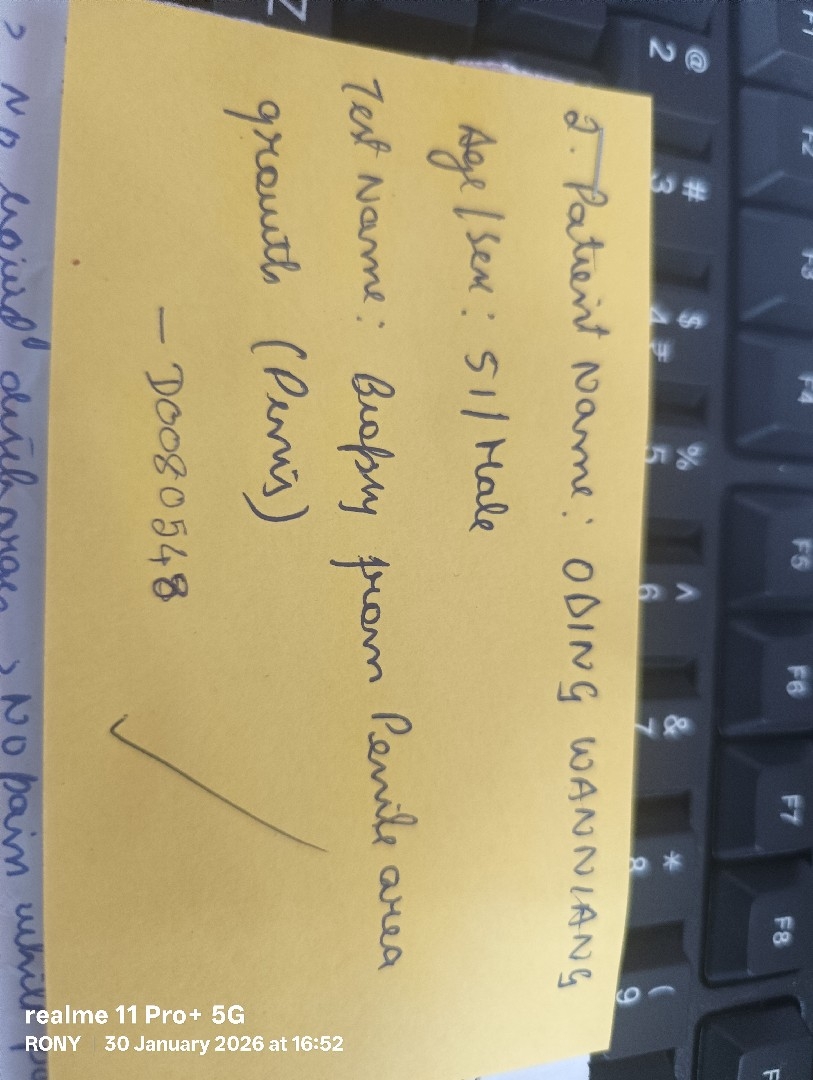 2. Patient Name: ODING WANNIANG
Age/Sex: 51/Male
Test Name: Biopsy from Penile area
growth (Penis)
— D0080548
> No pain while
realme 11 Pro+ 5G
RONY | 30 January 2026 at 16:52
@ 2
# 3
$ 4
% 5
^ 6
& 7
* 8
( 9
F1
F2
F3
F4
F5
F6
F7
F8
Z